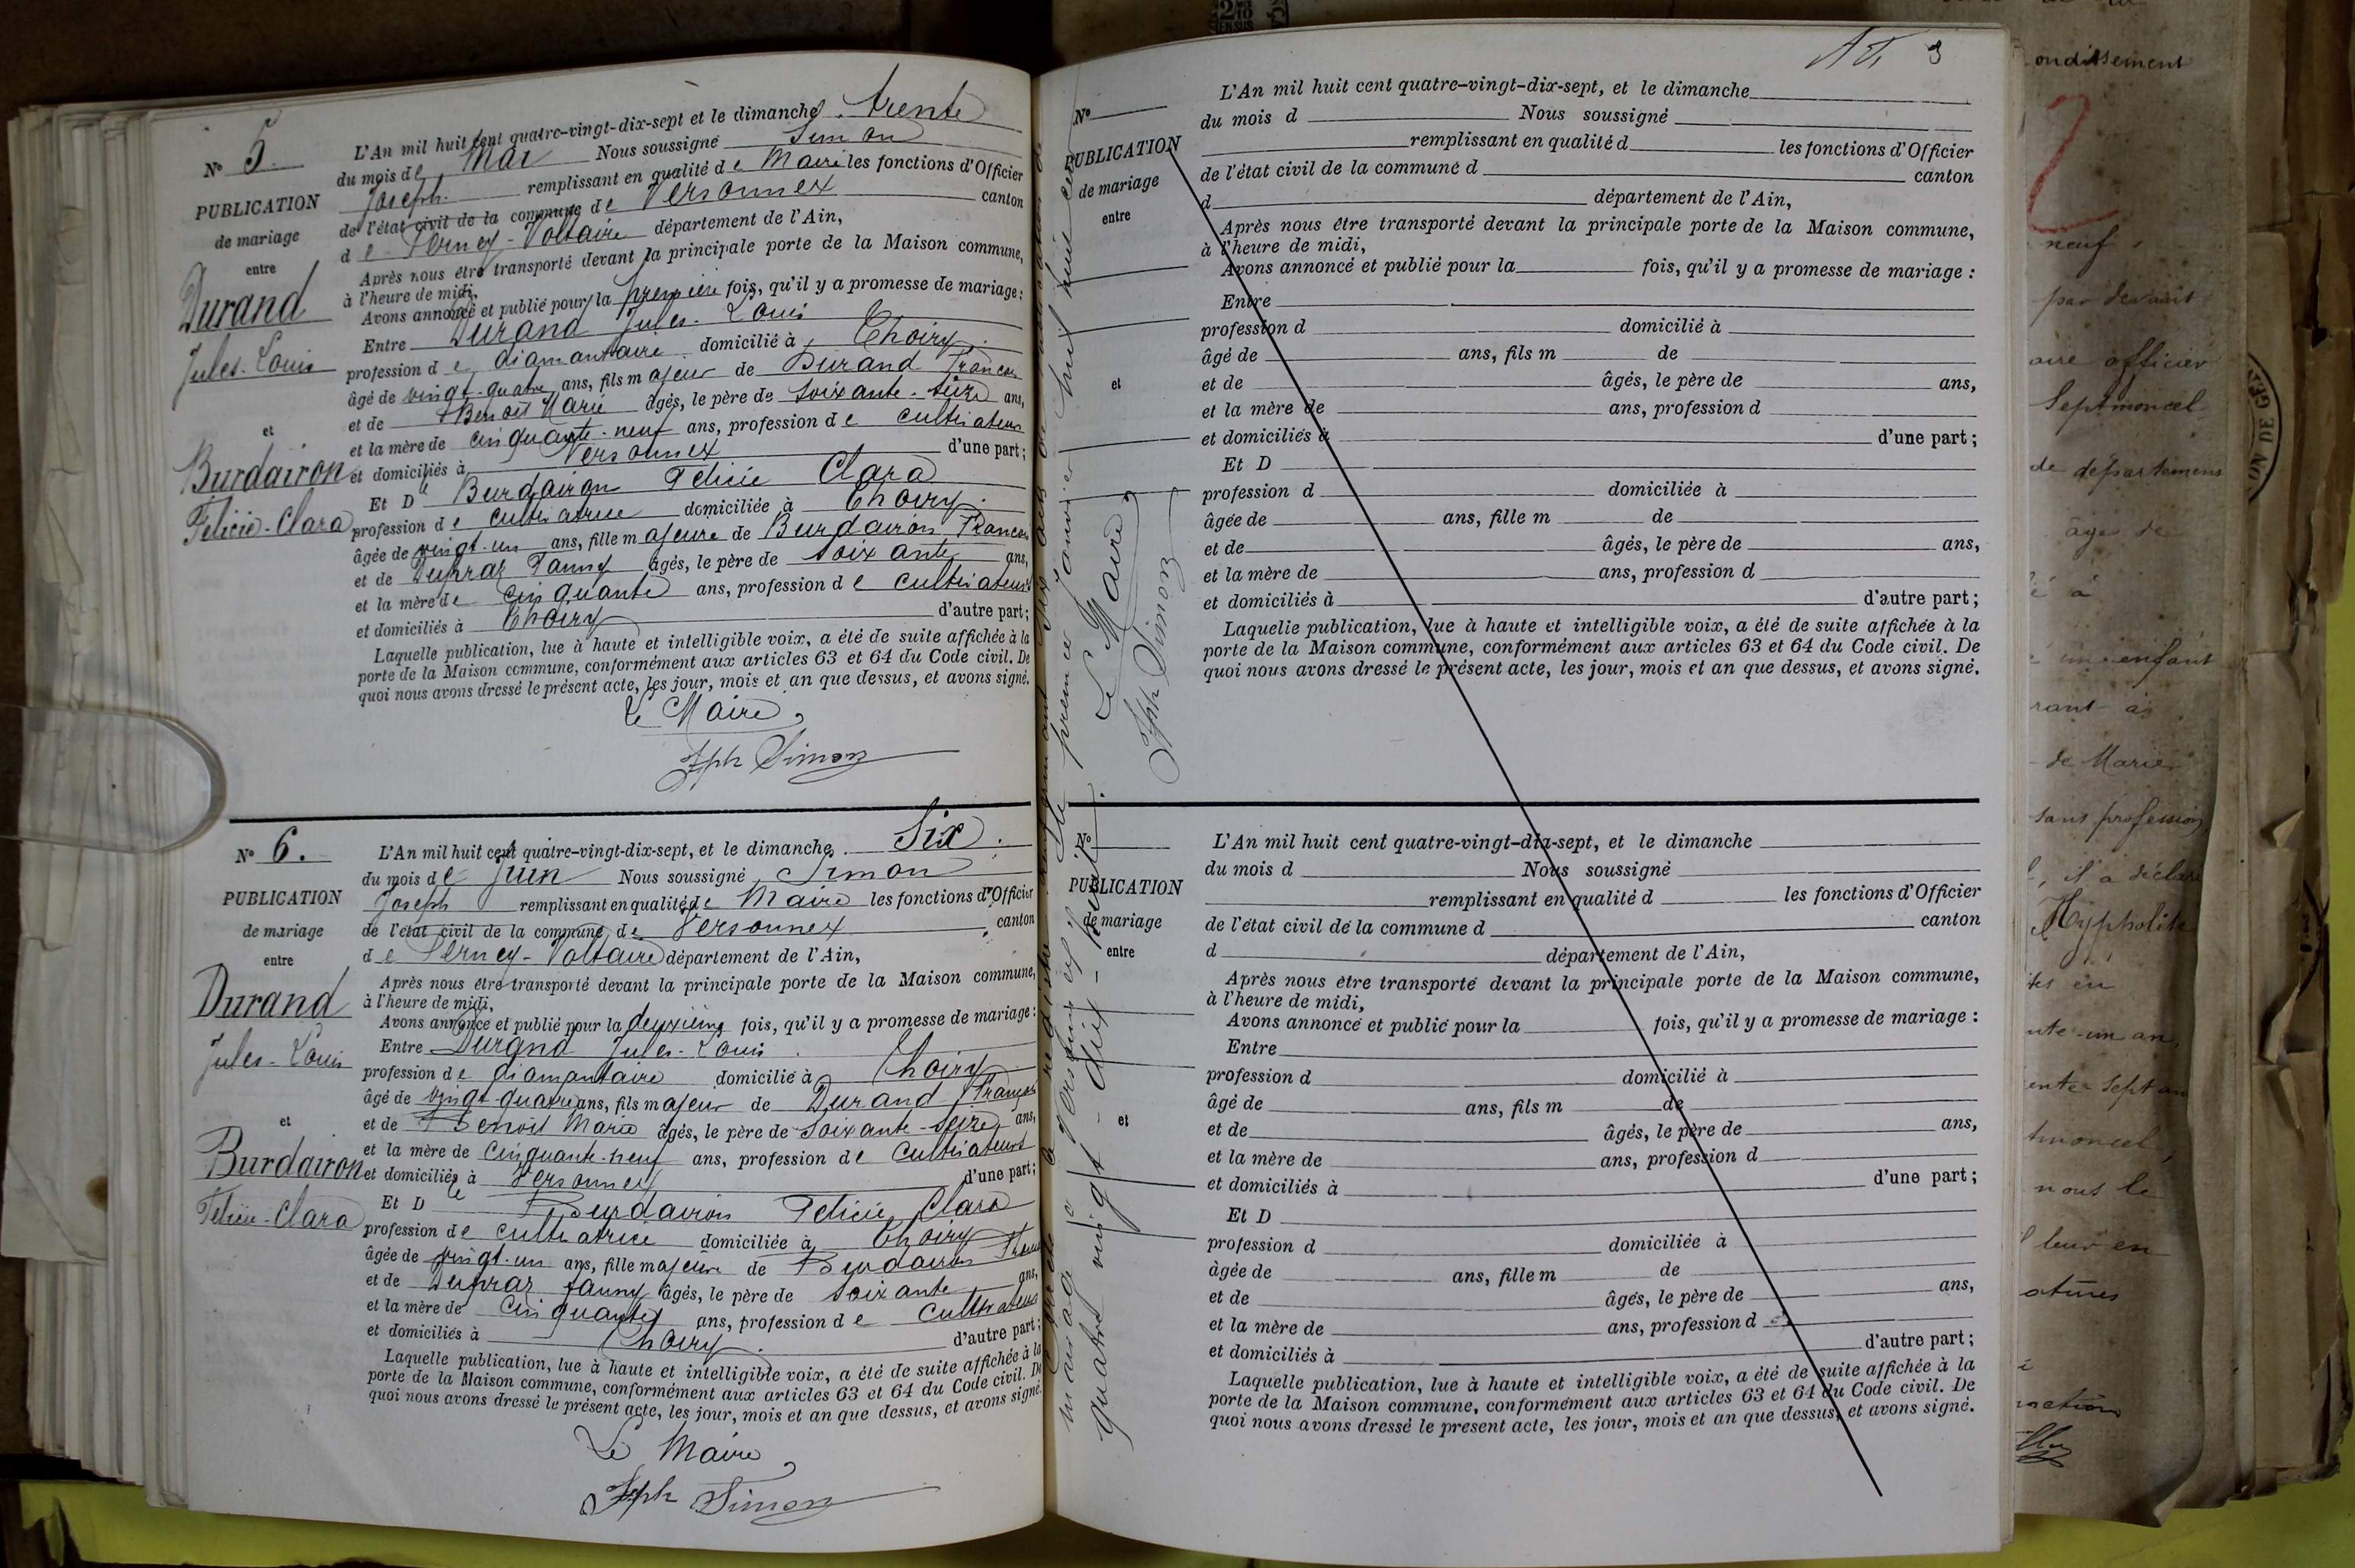 N° 5
PUBLICATION
de mariage
entre
Durand
Jules-Louis
et
Burdairon
Félicie-Clara
L'An mil huit cent quatre-vingt-dix-sept et le dimanche trente
du mois de Mai Nous soussigné Simon
Joseph remplissant en qualité de Maire les fonctions d'Officier
de l'état civil de la commune de Versonnex canton
de Ferney-Voltaire département de l'Ain,
Après nous être transporté devant la principale porte de la Maison commune,
à l'heure de midi,
Avons annoncé et publié pour la première fois, qu'il y a promesse de mariage :
Entre Durand Jules-Louis
profession de diamantaire domicilié à Thoiry
âgé de vingt-quatre ans, fils majeur de Durand François
et de Benoit Marie âgés, le père de soixante-seize ans,
et la mère de cinquante-neuf ans, profession de cultivateurs
et domiciliés à Versonnex d'une part ;
Et Dlle Burdairon Félicie Clara
profession de cultivatrice domiciliée à Thoiry
âgée de vingt-un ans, fille majeure de Burdairon François
et de Dupraz Fanny âgés, le père de soixante ans,
et la mère de cinquante ans, profession de cultivateurs
et domiciliés à Thoiry d'autre part ;
Laquelle publication, lue à haute et intelligible voix, a été de suite affichée à la
porte de la Maison commune, conformément aux articles 63 et 64 du Code civil. De
quoi nous avons dressé le présent acte, les jour, mois et an que dessus, et avons signé.
Le Maire,
Jph Simon
N° 6.
PUBLICATION
de mariage
entre
Durand
Jules-Louis
et
Burdairon
Félicie-Clara
L'An mil huit cent quatre-vingt-dix-sept, et le dimanche Six
du mois de Juin Nous soussigné Simon
Joseph remplissant en qualité de Maire les fonctions d'Officier
de l'état civil de la commune de Versonnex canton
de Ferney-Voltaire département de l'Ain,
Après nous être transporté devant la principale porte de la Maison commune,
à l'heure de midi,
Avons annoncé et publié pour la deuxième fois, qu'il y a promesse de mariage :
Entre Durand Jules-Louis
profession de diamantaire domicilié à Thoiry
âgé de vingt-quatre ans, fils majeur de Durand François
et de Benoit Marie âgés, le père de soixante-seize ans,
et la mère de cinquante-neuf ans, profession de cultivateurs
et domiciliés à Versonnex d'une part ;
Et Dlle Burdairon Félicie Clara
profession de cultivatrice domiciliée à Thoiry
âgée de vingt-un ans, fille majeure de Burdairon
et de Dupraz fanny âgés, le père de soixante ans,
et la mère de cinquante ans, profession de cultivateurs
et domiciliés à Thoiry d'autre part ;
Laquelle publication, lue à haute et intelligible voix, a été de suite affichée à la
porte de la Maison commune, conformément aux articles 63 et 64 du Code civil. De
quoi nous avons dressé le présent acte, les jour, mois et an que dessus, et avons signé.
Le Maire,
Jph Simon
mariage
premier janvier mil huit cent
quatre-vingt-dix-huit.
Le Maire,
Jph Simon
3
N°
PUBLICATION
de mariage
entre
et
L'An mil huit cent quatre-vingt-dix-sept, et le dimanche
du mois d Nous soussigné
remplissant en qualité d les fonctions d'Officier
de l'état civil de la commune d canton
d département de l'Ain,
Après nous être transporté devant la principale porte de la Maison commune,
à l'heure de midi,
Avons annoncé et publié pour la fois, qu'il y a promesse de mariage :
Entre
profession d domicilié à
âgé de ans, fils m de
et de âgés, le père de ans,
et la mère de ans, profession d
et domiciliés à d'une part ;
Et D
profession d domiciliée à
âgée de ans, fille m de
et de âgés, le père de ans,
et la mère de ans, profession d
et domiciliés à d'autre part ;
Laquelle publication, lue à haute et intelligible voix, a été de suite affichée à la
porte de la Maison commune, conformément aux articles 63 et 64 du Code civil. De
quoi nous avons dressé le présent acte, les jour, mois et an que dessus, et avons signé.
N°
PUBLICATION
de mariage
entre
et
L'An mil huit cent quatre-vingt-dix-sept, et le dimanche
du mois d Nous soussigné
remplissant en qualité d les fonctions d'Officier
de l'état civil de la commune d canton
d département de l'Ain,
Après nous être transporté devant la principale porte de la Maison commune,
à l'heure de midi,
Avons annoncé et publié pour la fois, qu'il y a promesse de mariage :
Entre
profession d domicilié à
âgé de ans, fils m de
et de âgés, le père de ans,
et la mère de ans, profession d
et domiciliés à d'une part ;
Et D
profession d domiciliée à
âgée de ans, fille m de
et de âgés, le père de ans,
et la mère de ans, profession d
et domiciliés à d'autre part ;
Laquelle publication, lue à haute et intelligible voix, a été de suite affichée à la
porte de la Maison commune, conformément aux articles 63 et 64 du Code civil. De
quoi nous avons dressé le present acte, les jour, mois et an que dessus, et avons signé.
ondissement
neuf
par devant
aire officier
Septmoncel
de département
âge de
é à
un enfant
rant à
de Marie
sans profession
, il a déclaré
Hyppolite
tes en
nte-un an,
ente sept an
tmoncel,
nous le
leur en
atures
ON DE GE